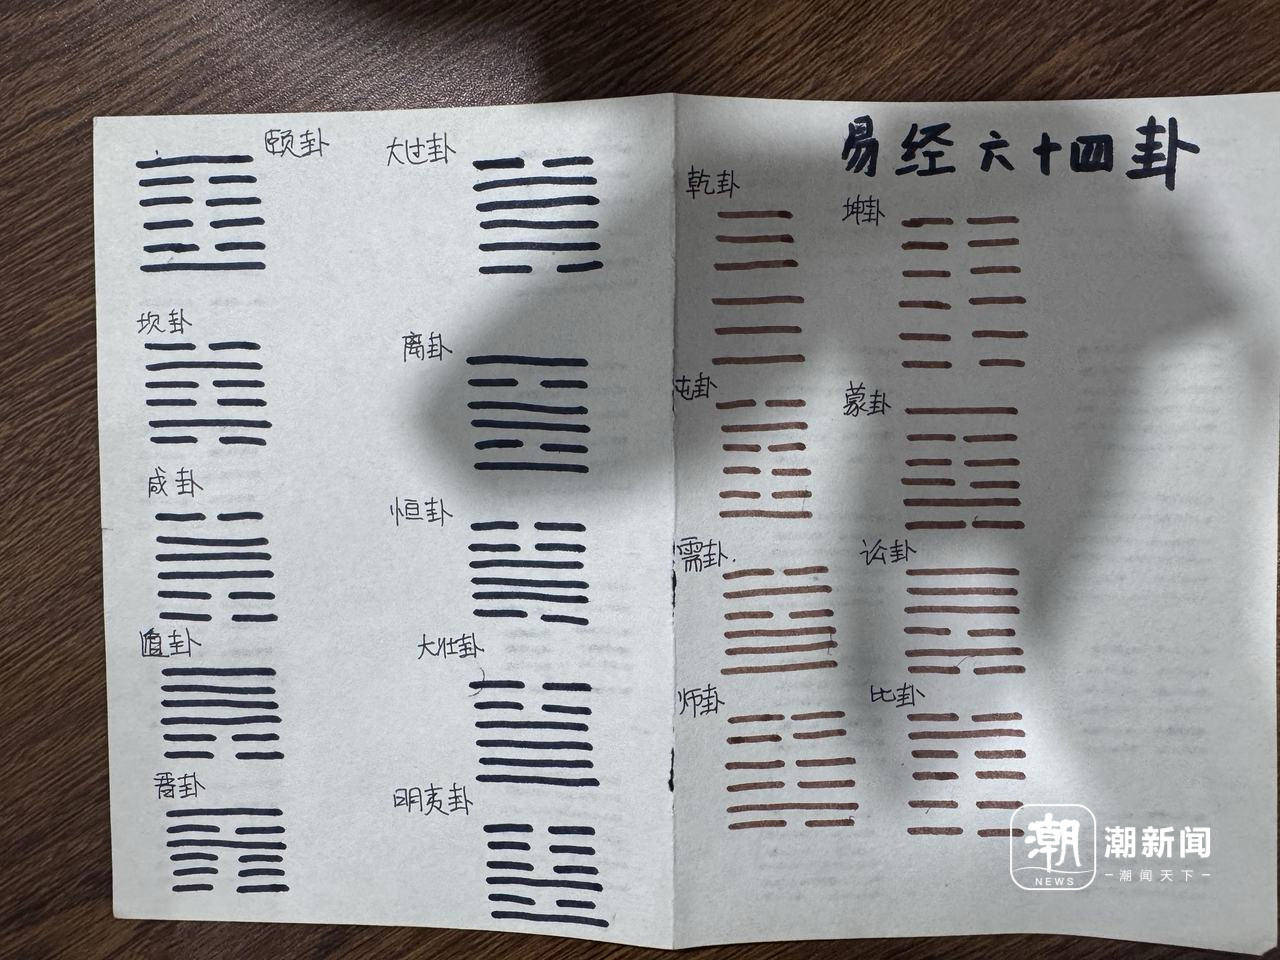 颐卦 大过卦
坎卦
离卦
咸卦
恒卦
大壮卦
晋卦
明夷卦
易经六十四卦
乾卦
坤卦
屯卦
蒙卦
需卦.
讼卦
师卦
比卦
潮 NEWS
潮新闻
潮闻天下